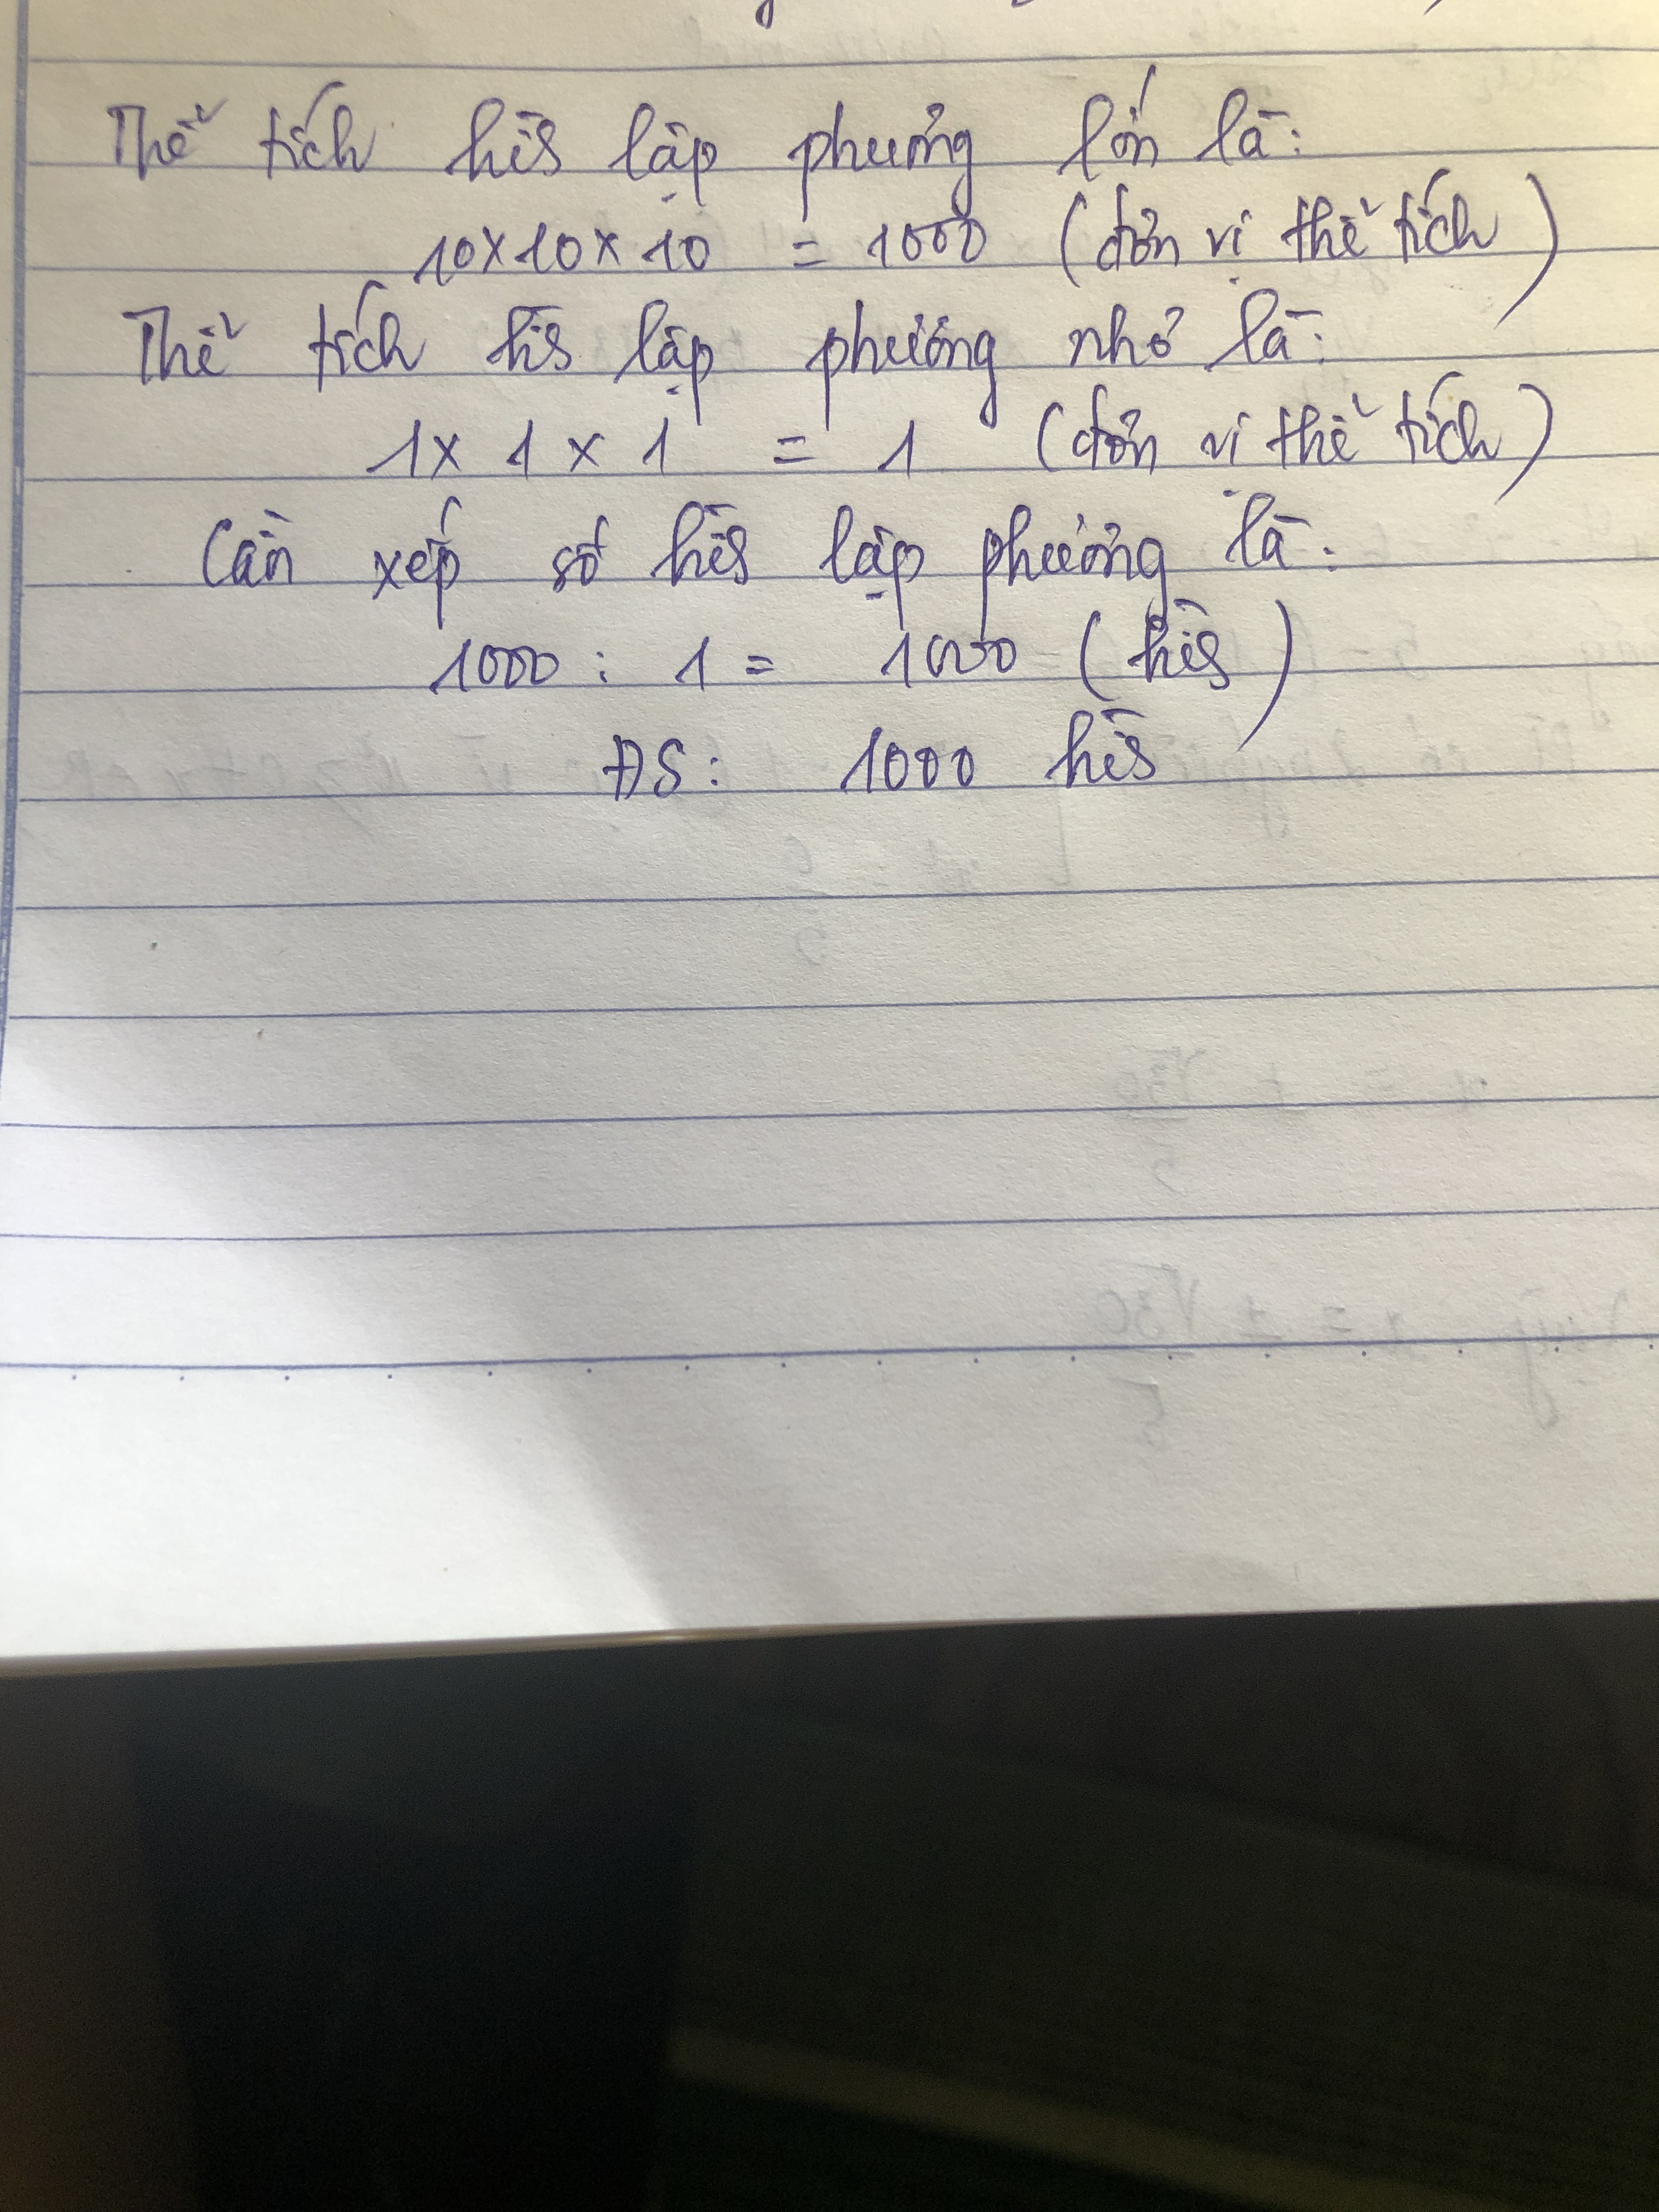 Thể tích hình lập phương lớn là:
10 x 10 x 10 = 1000 (đơn vị thể tích)
Thể tích hình lập phương nhỏ là:
1 x 1 x 1 = 1 (đơn vị thể tích)
Cần xếp số hình lập phương là:
1000 : 1 = 1000 (hình)
ĐS: 1000 hình